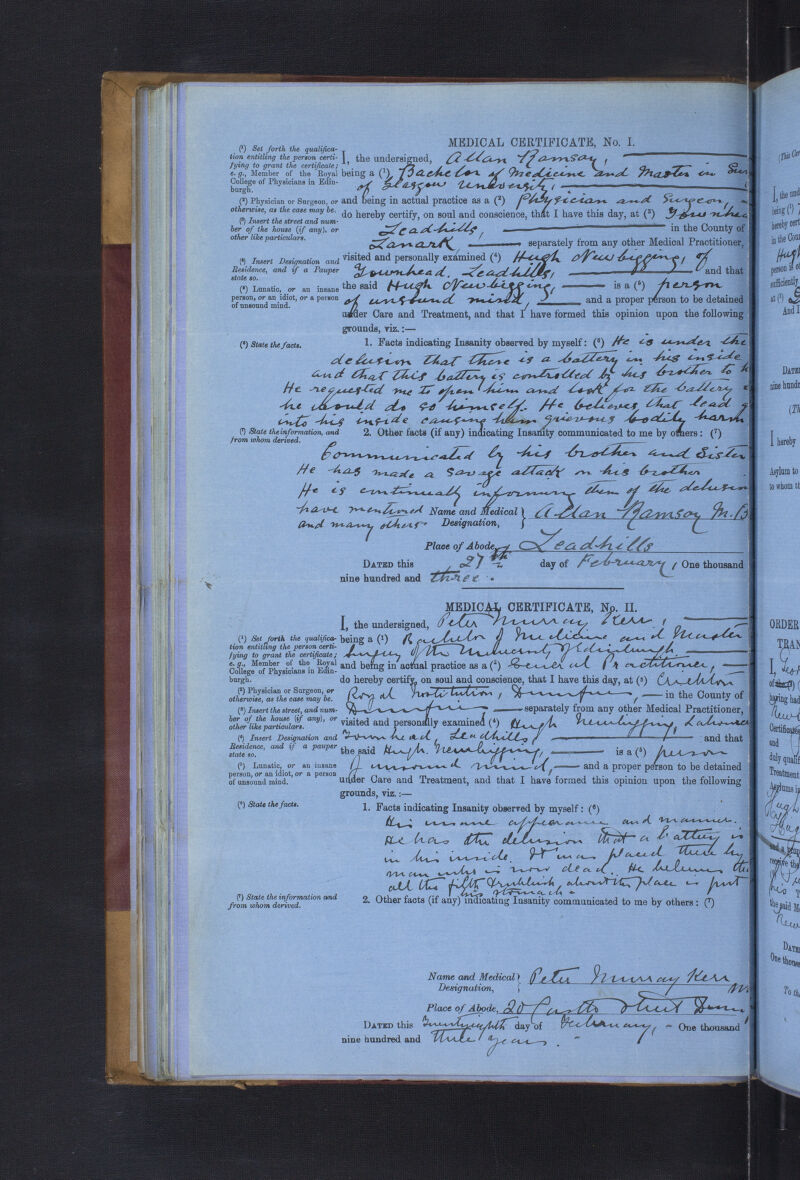 MEDICAL CERTIFICATE, No. I.
(¹) Set forth the qualifica-
tion entitling the person certi-
fying to grant the certificate;
e. g., Member of the Royal
College of Physicians in Edin-
burgh.
(²) Physician or Surgeon, or
otherwise, as the case may be.
(³) Insert the street and num-
ber of the house (if any), or
other like particulars.
(⁴) Insert Designation and
Residence, and if a Pauper
state so.
(⁵) Lunatic, or an insane
person, or an idiot, or a person
of unsound mind.
I, the undersigned, Allan Ramsay,
being a (¹) Bachelor of Medicine and Master in Sur
of Glasgow University,
and being in actual practice as a (²) Physician and Surgeon,
do hereby certify, on soul and conscience, that I have this day, at (³) Townhea
Leadhills, in the County of
Lanark, separately from any other Medical Practitioner,
visited and personally examined (⁴) Hugh Newbigging, of
Townhead, Leadhills, and that
the said Hugh Newbigging, is a (⁵) person
of unsound mind, and a proper person to be detained
under Care and Treatment, and that I have formed this opinion upon the following
grounds, viz.:—
(⁶) State the facts.
1. Facts indicating Insanity observed by myself: (⁶) He is under the
delusion that there is a battery in his inside
and that this battery is controlled by his brother to h
He requested me to open him and look for the battery
he would do so himself. He believes that lead g
into his inside causing him grievous bodily harm
(⁷) State the information, and
from whom derived.
2. Other facts (if any) indicating Insanity communicated to me by others: (⁷)
Communicated by his brother and Sister
He has made a savage attack on his brother
He is continually informing them of the delusion
have mentioned
and many others.
Name and Medical Designation, Allan Ramsay M.B
Place of Abode, Leadhills
DATED this 27th day of February, One thousand
nine hundred and three.
MEDICAL CERTIFICATE, No. II.
(¹) Set forth the qualifica-
tion entitling the person certi-
fying to grant the certificate;
e. g., Member of the Royal
College of Physicians in Edin-
burgh.
(²) Physician or Surgeon, or
otherwise, as the case may be.
(³) Insert the street, and num-
ber of the house (if any), or
other like particulars.
(⁴) Insert Designation and
Residence, and if a pauper
state so.
(⁵) Lunatic, or an insane
person, or an idiot, or a person
of unsound mind.
I, the undersigned, Peter Murray Kerr,
being a (¹) Bachelor of Medicine and Master
Surgery of the University of Edinburgh
and being in actual practice as a (²) General Practitioner,
do hereby certify, on soul and conscience, that I have this day, at (³) Crichton
Royal Institution, Dumfries, in the County of
Dumfries separately from any other Medical Practitioner,
visited and personally examined (⁴) Hugh Newbigging, Labourer
Townhead, Leadhills, and that
the said Hugh Newbigging, is a (⁵) person
of unsound mind, and a proper person to be detained
under Care and Treatment, and that I have formed this opinion upon the following
grounds, viz.:—
(⁶) State the facts.
1. Facts indicating Insanity observed by myself: (⁶)
His insane appearance and manner.
He has the delusion that a battery is
in his inside. It was placed there by
man who is now dead. He believes the
all the filth & rubbish about the place is put
his stomach.
(⁷) State the information and
from whom derived.
2. Other facts (if any) indicating Insanity communicated to me by others: (⁷)
Name and Medical Designation, Peter Murray Kerr
Place of Abode, 20 Castle Street Dum
DATED this Twentyeighth day of February, One thousand
nine hundred and three years.
(This Cer
I, the und
being (¹)
hereby cert
in the Coun
Hugh
person is of
sufficiently
at (²)
And I
DATED
nine hundr
(Th
I hereby
Asylum to
to whom th
ORDER
TRAN
I, Geo
having had
Certificate
and
duly qualif
Treatment
Asylums in
Hugh
and a
receive the
his
the said
DATED
One thousa
To th